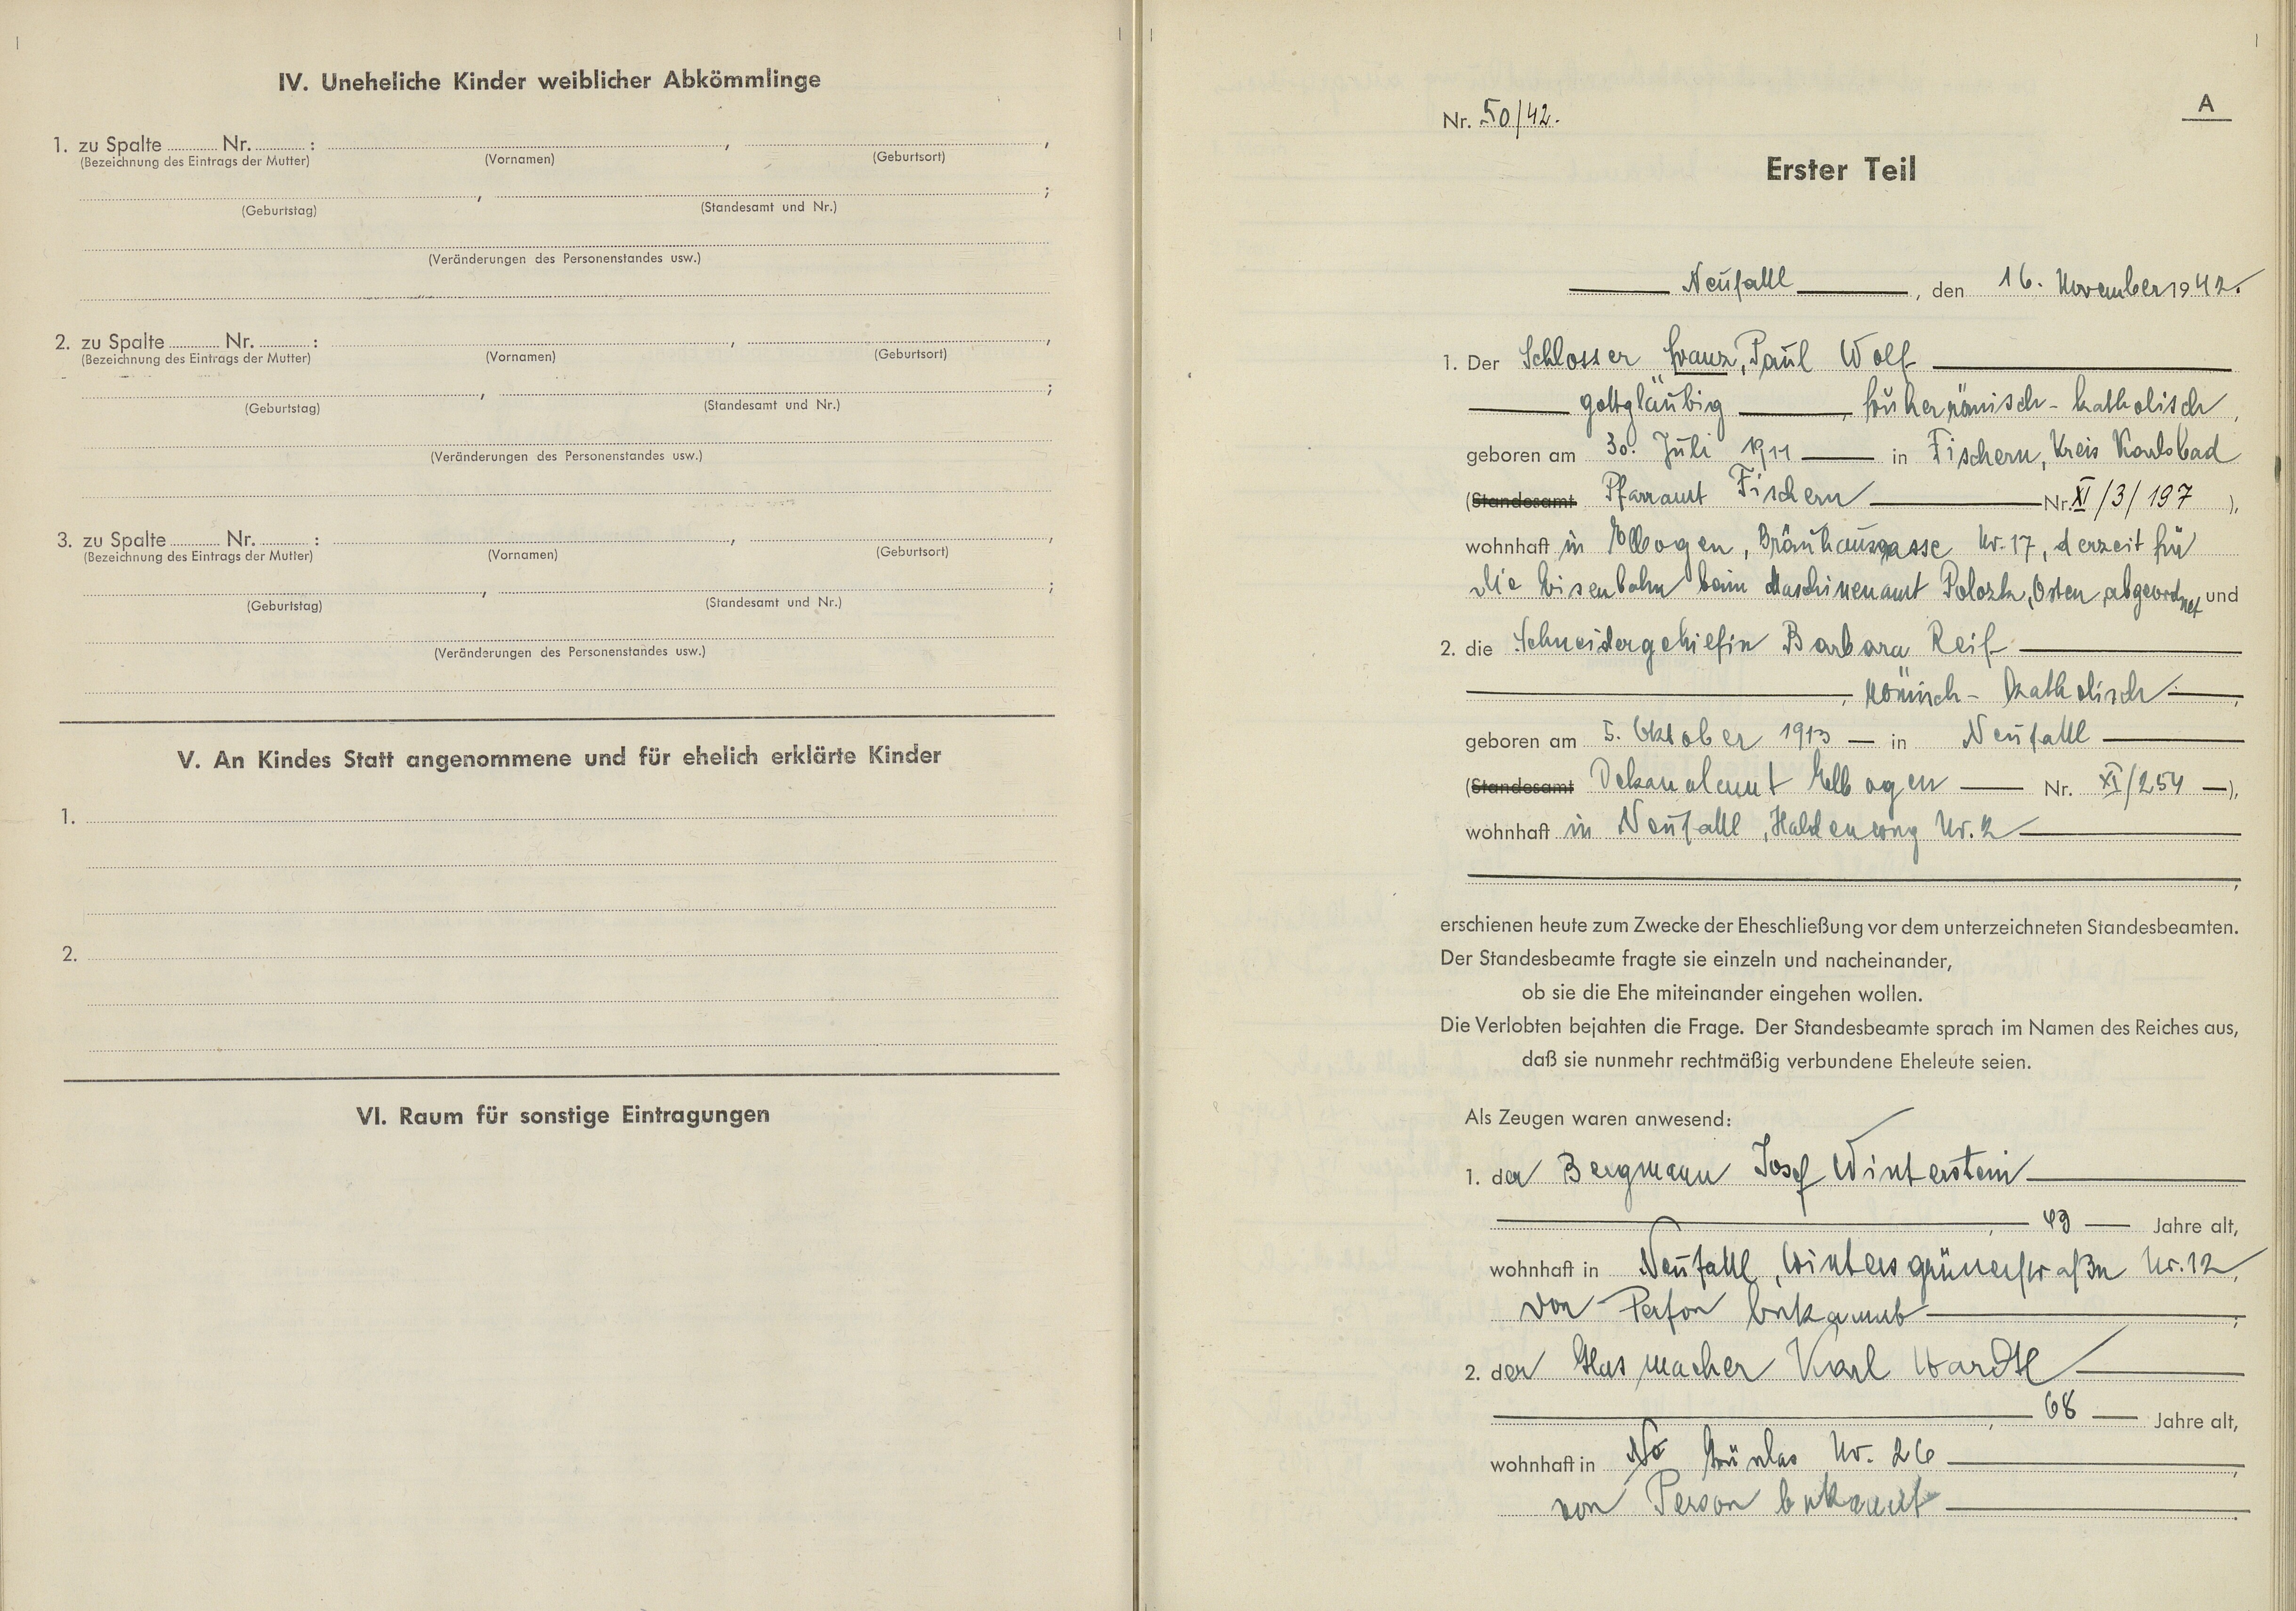 IV. Uneheliche Kinder weiblicher Abkömmlinge
1. zu Spalte ........ Nr. ........ : ........, ........,
(Bezeichnung des Eintrags der Mutter) (Vornamen) (Geburtsort)
........, ........;
(Geburtstag) (Standesamt und Nr.)
(Veränderungen des Personenstandes usw.)
2. zu Spalte ........ Nr. ........ : ........, ........,
(Bezeichnung des Eintrags der Mutter) (Vornamen) (Geburtsort)
........, ........;
(Geburtstag) (Standesamt und Nr.)
(Veränderungen des Personenstandes usw.)
3. zu Spalte ........ Nr. ........ : ........, ........,
(Bezeichnung des Eintrags der Mutter) (Vornamen) (Geburtsort)
........, ........;
(Geburtstag) (Standesamt und Nr.)
(Veränderungen des Personenstandes usw.)
V. An Kindes Statt angenommene und für ehelich erklärte Kinder
1.
2.
VI. Raum für sonstige Eintragungen
A
Nr. 50/42.
Erster Teil
Neusattl, den 16. November 1942.
1. Der Schlosser Franz, Paul Wolf
gottgläubig, früher römisch-katholisch,
geboren am 30. Juli 1911 in Fischern, Kreis Karlsbad
(Standesamt Pfarramt Fischern Nr. XI/3/197),
wohnhaft in Elbogen, Bräuhausgasse Nr. 17, derzeit für
die Eisenbahn beim Maschinenamt Polozk, Osten, abgeordnet und
2. die Schneidergehilfin Barbara Reif
, römisch-katholisch,
geboren am 5. Oktober 1913 in Neusattl
(Standesamt Dekanalamt Elbogen Nr. XI/254),
wohnhaft in Neusattl, Haldenweg Nr. 2
,
erschienen heute zum Zwecke der Eheschließung vor dem unterzeichneten Standesbeamten.
Der Standesbeamte fragte sie einzeln und nacheinander,
ob sie die Ehe miteinander eingehen wollen.
Die Verlobten bejahten die Frage. Der Standesbeamte sprach im Namen des Reiches aus,
daß sie nunmehr rechtmäßig verbundene Eheleute seien.
Als Zeugen waren anwesend:
1. der Bergmann Josef Winterstein
, 49 Jahre alt,
wohnhaft in Neusattl, Wintersgrünerstraße Nr. 12,
von Person bekannt;
2. der Glasmacher Karl
, 68 Jahre alt,
wohnhaft in Grünlas Nr. 26,
von Person bekannt.